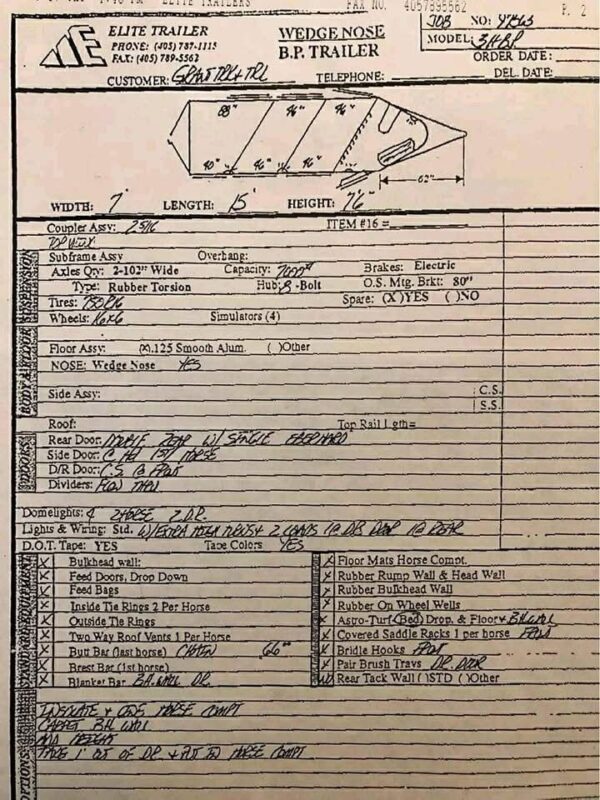 ELITE TRAILERS FAX NO. 4057895562 P. 2
ELITE TRAILER
PHONE: (405) 787-1115
FAX: (405) 789-5562
WEDGE NOSE
B.P. TRAILER
JOB NO:
MODEL: 3HBP
ORDER DATE:
DEL. DATE:
CUSTOMER: GRANT TRK & TRL TELEPHONE:
46" 46"
40" 46" 46"
62"
WIDTH: 7' LENGTH: 15' HEIGHT: 7'6"
Coupler Assy: 2 5/16 ITEM #16 =
Subframe Assy Overhang:
Axles Qty: 2-102" Wide Capacity: 7000# Brakes: Electric
Type: Rubber Torsion Hub: 8 -Bolt O.S. Mtg. Brkt: 80"
Tires: 750R16 Spare: (X)YES ( )NO
Wheels: 16x6 Simulators (4)
Floor Assy: (X).125 Smooth Alum. ( )Other
NOSE: Wedge Nose YES
Side Assy: C.S.
S.S.
Roof: Top Rail Lgth=
Rear Door: DOUBLE REAR W/ SINGLE
Side Door: 1ST HORSE
D/R Door: C.S. @ FRONT
Dividers: FLOW THRU
DOORS
Domelights: 4 2 HORSE 2 DR
Lights & Wiring: Std. W/EXTRA HIGH TURNS & 2 LOADS 1@ DR DOOR 1@ REAR
D.O.T. Tape: YES Tape Colors YES
X Bulkhead wall:
X Feed Doors, Drop Down
X Feed Bags
X Inside Tie Rings 2 Per Horse
X Outside Tie Rings
X Two Way Roof Vents 1 Per Horse
X Butt Bar (last horse) CHAIN 66"
Brest Bar (1st horse)
X Blanket Bar B.H. WALL DR
X Floor Mats Horse Compt.
X Rubber Rump Wall & Head Wall
X Rubber Bulkhead Wall
X Rubber On Wheel Wells
X Astro-Turf (Bed) Drop, & Floor & B.H. WALL
X Covered Saddle Racks 1 per horse FRONT
X Bridle Hooks FRONT
X Pair Brush Trays DR DOOR
Rear Tack Wall ( )STD ( )Other
OPTIONS
INSULATE & CODE HORSE COMPT
CARPET B.H. WALL
ADD HEIGHT
TAKE 1' OUT OF DR & PUT IN HORSE COMPT